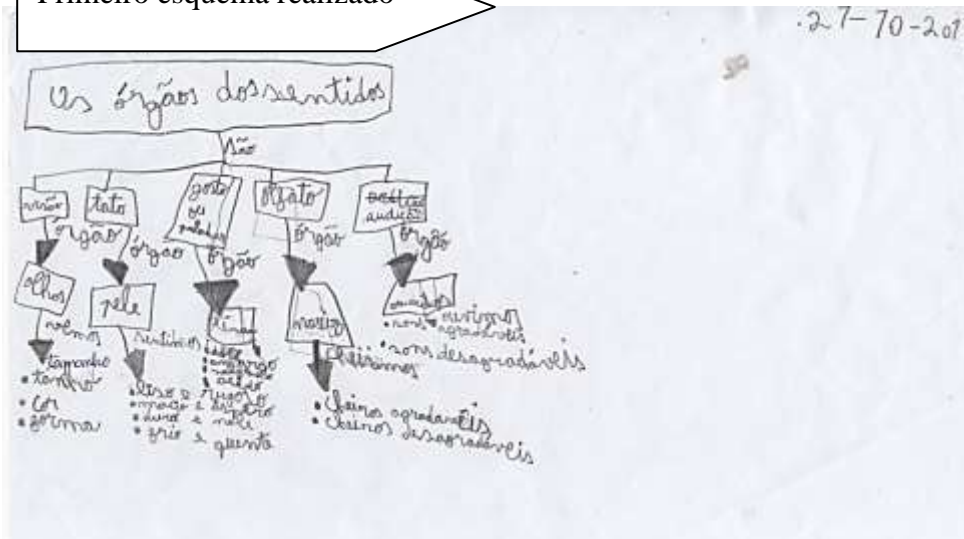 Primeiro esquema realizado
27-10-201
Os órgãos dos sentidos
são
visão
tato
gosto ou paladar
olfato
audição
órgão
órgão
órgão
órgão
órgão
olhos
pele
língua
nariz
ouvidos
vemos
sentimos
cheiramos
ouvimos
• tamanho
• tanho
• cor
• forma
• liso e rugoso
• macio e áspero
• duro e mole
• frio e quente
• doce
• amargo
• salgado
• cheiros agradavéis
• cheiros desagradavéis
• sons agradavéis
• sons desagradávéis